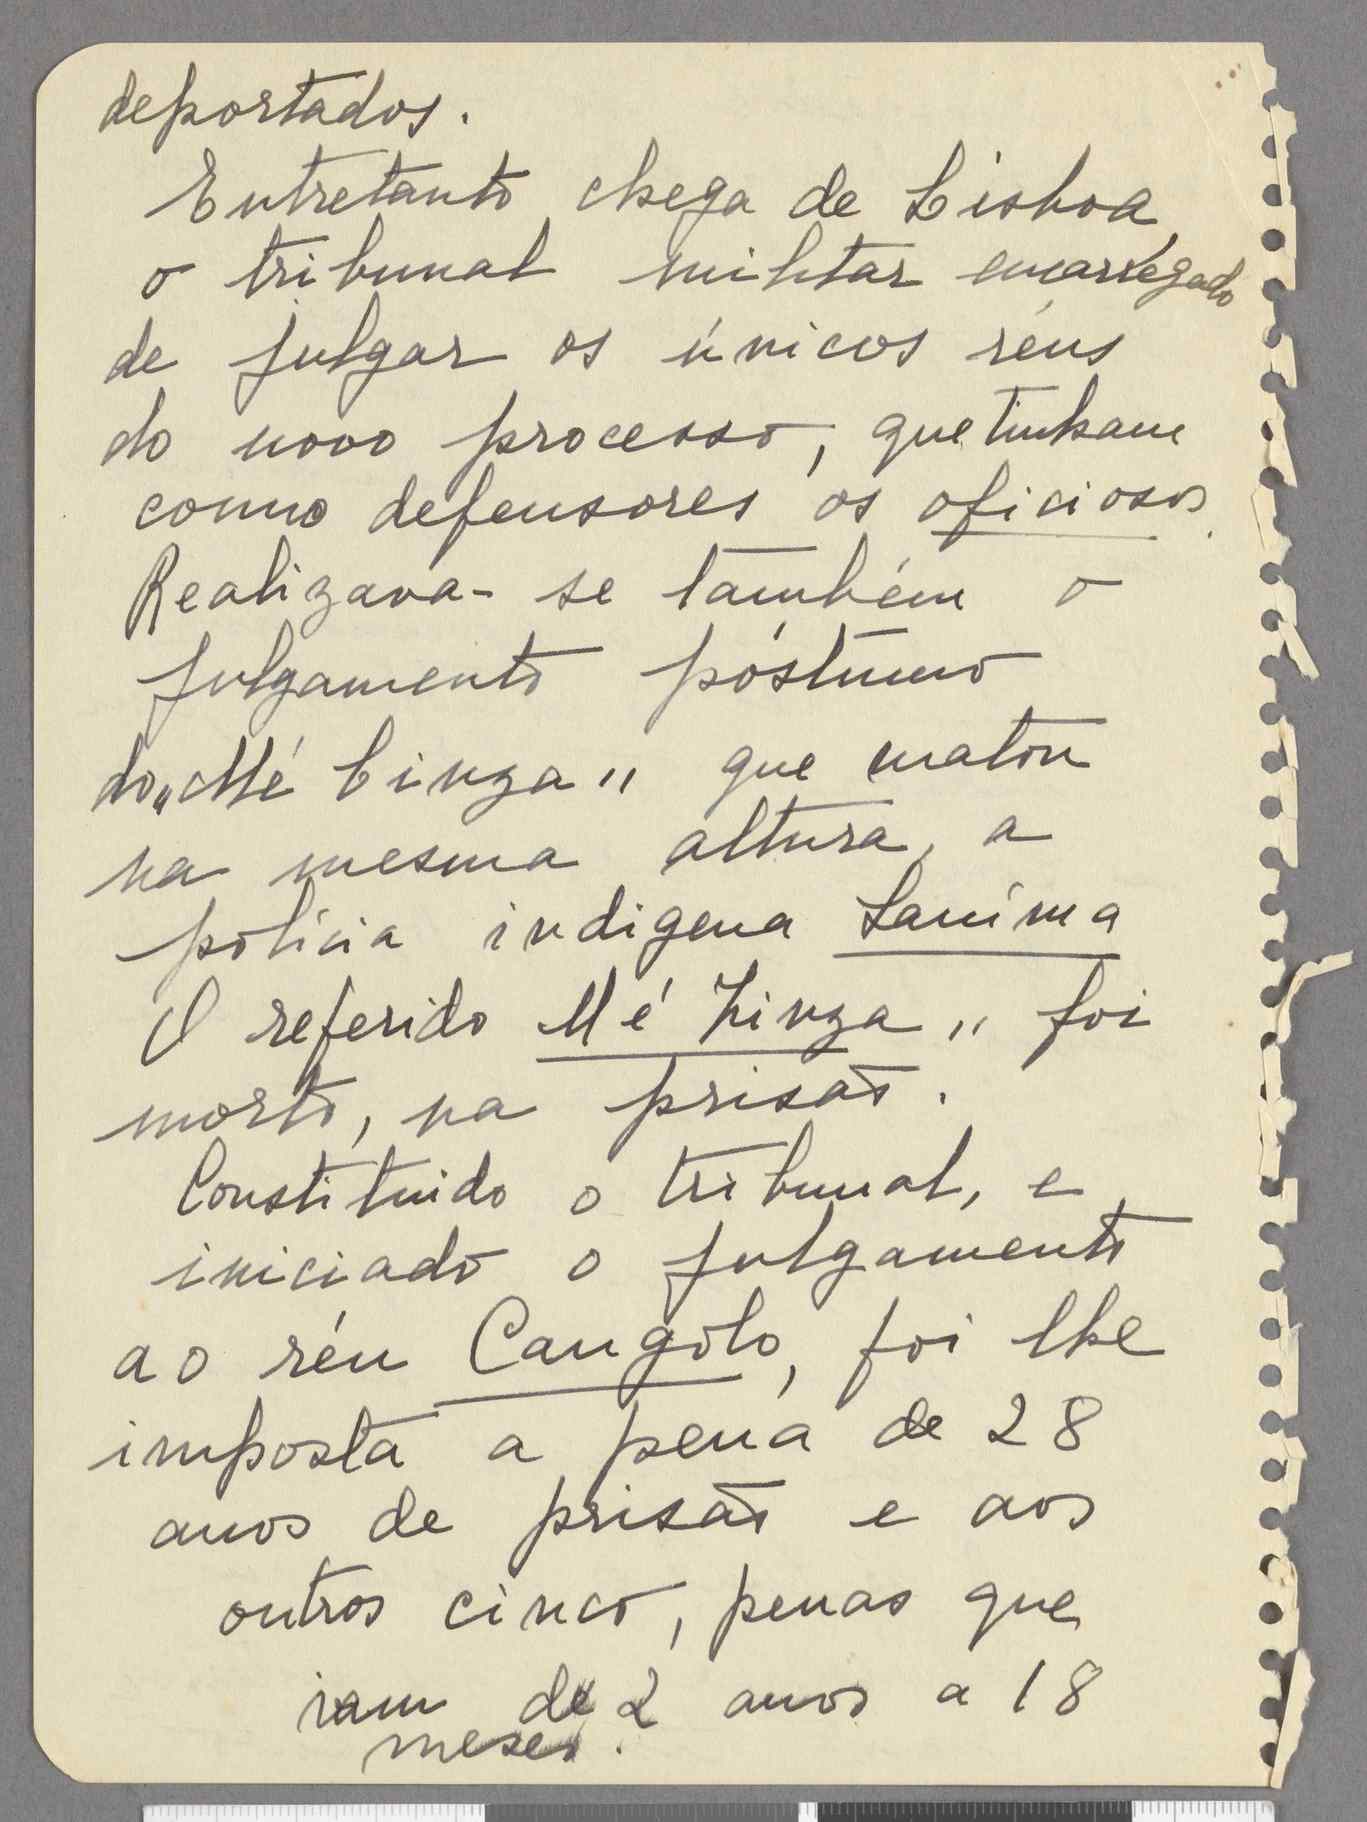 deportados.
Entretanto chega de Lisboa,
o tribunal militar encarregado
de julgar os únicos réus
do novo processo, que tinham
como defensores os oficiosos.
Realizava-se também o
julgamento póstumo
do "Mé Cinza" que matou
na mesma altura, a
polícia indigena Lanima
O referido Mé Zinza" foi
morto, na prisão.
Constituido o tribunal, e
iniciado o julgamento
ao réu Cangolo, foi lhe
imposta a pena de 28
anos de prisão e aos
outros cinco, penas que
iam de 2 anos a 18
meses.